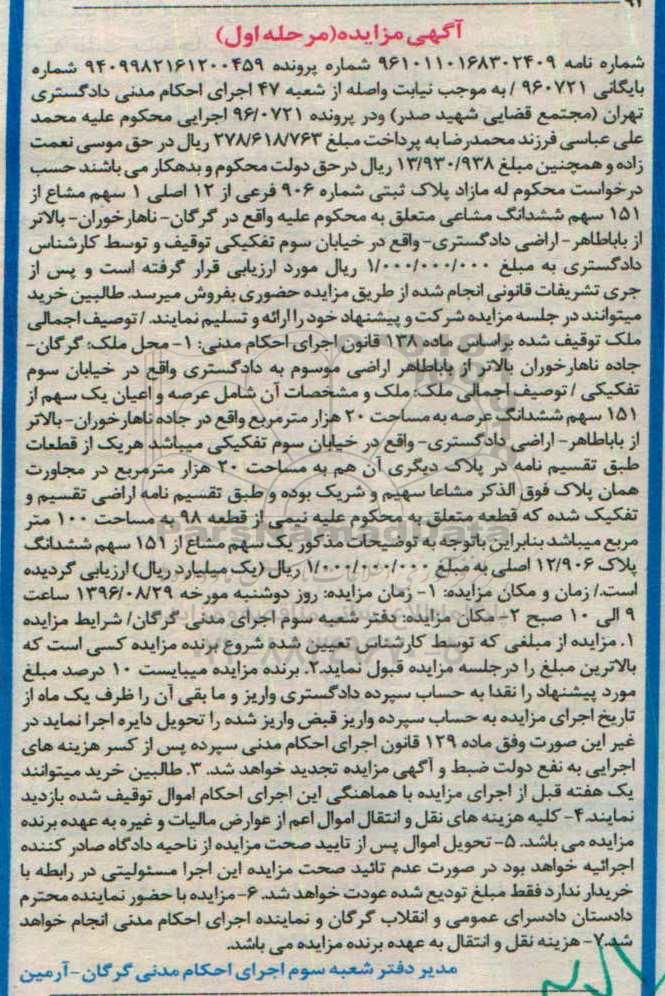 آگهی مزایده(مرحله اول)
شماره نامه ۹۶۱۰۱۱۰۱۶۸۳۰۲۴۰۹ شماره پرونده ۹۴۰۹۹۸۲۱۶۱۲۰۰۴۵۹ شماره
بایگانی ۹۶۰۷۲۱ / به موجب نیابت واصله از شعبه ۴۷ اجرای احکام مدنی دادگستری
تهران (مجتمع قضایی شهید صدر) ودر پرونده ۹۶/۰۷۲۱ اجرایی محکوم علیه محمد
علی عباسی فرزند محمدرضا به پرداخت مبلغ ۲۷۸/۶۱۸/۷۶۳ ریال در حق موسی نعمت
زاده و همچنین مبلغ ۱۳/۹۳۰/۹۳۸ ریال درحق دولت محکوم و بدهکار می باشند حسب
درخواست محکوم له مازاد پلاک ثبتی شماره ۹۰۶ فرعی از ۱۲ اصلی ۱ سهم مشاع از
۱۵۱ سهم ششدانگ مشاعی متعلق به محکوم علیه واقع در گرگان- ناهارخوران- بالاتر
از باباطاهر- اراضی دادگستری- واقع در خیابان سوم تفکیکی توقیف و توسط کارشناس
دادگستری به مبلغ ۱/۰۰۰/۰۰۰/۰۰۰ ریال مورد ارزیابی قرار گرفته است و پس از
جری تشریفات قانونی انجام شده از طریق مزایده حضوری بفروش میرسد. طالبین خرید
میتوانند در جلسه مزایده شرکت و پیشنهاد خود را ارائه و تسلیم نمایند. / توصیف اجمالی
ملک توقیف شده براساس ماده ۱۳۸ قانون اجرای احکام مدنی: ۱- محل ملک: گرگان-
جاده ناهارخوران بالاتر از باباطاهر اراضی موسوم به دادگستری واقع در خیابان سوم
تفکیکی / توصیف اجمالی ملک: ملک و مشخصات آن شامل عرصه و اعیان یک سهم از
۱۵۱ سهم ششدانگ عرصه به مساحت ۲۰ هزار مترمربع واقع در جاده ناهارخوران- بالاتر
از باباطاهر- اراضی دادگستری- واقع در خیابان سوم تفکیکی میباشد هریک از قطعات
طبق تقسیم نامه در پلاک دیگری آن هم به مساحت ۲۰ هزار مترمربع در مجاورت
همان پلاک فوق الذکر مشاعا سهیم و شریک بوده و طبق تقسیم نامه اراضی تقسیم و
تفکیک شده که قطعه متعلق به محکوم علیه نیمی از قطعه ۹۸ به مساحت ۱۰۰ متر
مربع میباشد بنابراین باتوجه به توضیحات مذکور یک سهم مشاع از ۱۵۱ سهم ششدانگ
پلاک ۱۲/۹۰۶ اصلی به مبلغ ۱/۰۰۰/۰۰۰/۰۰۰ ریال (یک میلیارد ریال) ارزیابی گردیده
است./ زمان و مکان مزایده: ۱- زمان مزایده: روز دوشنبه مورخه ۱۳۹۶/۰۸/۲۹ ساعت
۹ الی ۱۰ صبح ۲- مکان مزایده: دفتر شعبه سوم اجرای مدنی گرگان/ شرایط مزایده
۱. مزایده از مبلغی که توسط کارشناس تعیین شده شروع برنده مزایده کسی است که
بالاترین مبلغ را درجلسه مزایده قبول نماید.۲. برنده مزایده میبایست ۱۰ درصد مبلغ
مورد پیشنهاد را نقدا به حساب سپرده دادگستری واریز و ما بقی آن را ظرف یک ماه از
تاریخ اجرای مزایده به حساب سپرده واریز قبض واریز شده را تحویل دایره اجرا نماید در
غیر این صورت وفق ماده ۱۲۹ قانون اجرای احکام مدنی سپرده پس از کسر هزینه های
اجرایی به نفع دولت ضبط و آگهی مزایده تجدید خواهد شد. ۳. طالبین خرید میتوانند
یک هفته قبل از اجرای مزایده با هماهنگی این اجرای احکام اموال توقیف شده بازدید
نمایند.۴- کلیه هزینه های نقل و انتقال اموال اعم از عوارض مالیات و غیره به عهده برنده
مزایده می باشد. ۵- تحویل اموال پس از تایید صحت مزایده از ناحیه دادگاه صادر کننده
اجرائیه خواهد بود در صورت عدم تائید صحت مزایده این اجرا مسئولیتی در رابطه با
خریدار ندارد فقط مبلغ تودیع شده عودت خواهد شد. ۶- مزایده با حضور نماینده محترم
دادستان دادسرای عمومی و انقلاب گرگان و نماینده اجرای احکام مدنی انجام خواهد
شد.۷- هزینه نقل و انتقال به عهده برنده مزایده می باشد.
مدیر دفتر شعبه سوم اجرای احکام مدنی گرگان-آرمین